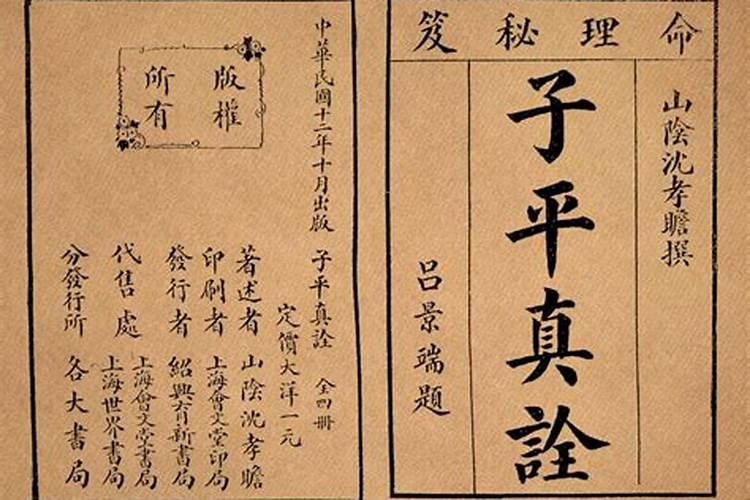 命理秘笈
山陰沈孝瞻撰
子平真詮
呂景端題
中華民國十二年十月出版
子平真詮 全四冊
定價大洋一元
著述者 山陰沈孝瞻
印刷者 上海會文堂印局
發行者 紹興育新書局
代售處 上海會文堂書局
上海世界書局
分發行所 各大書局
版權
所有